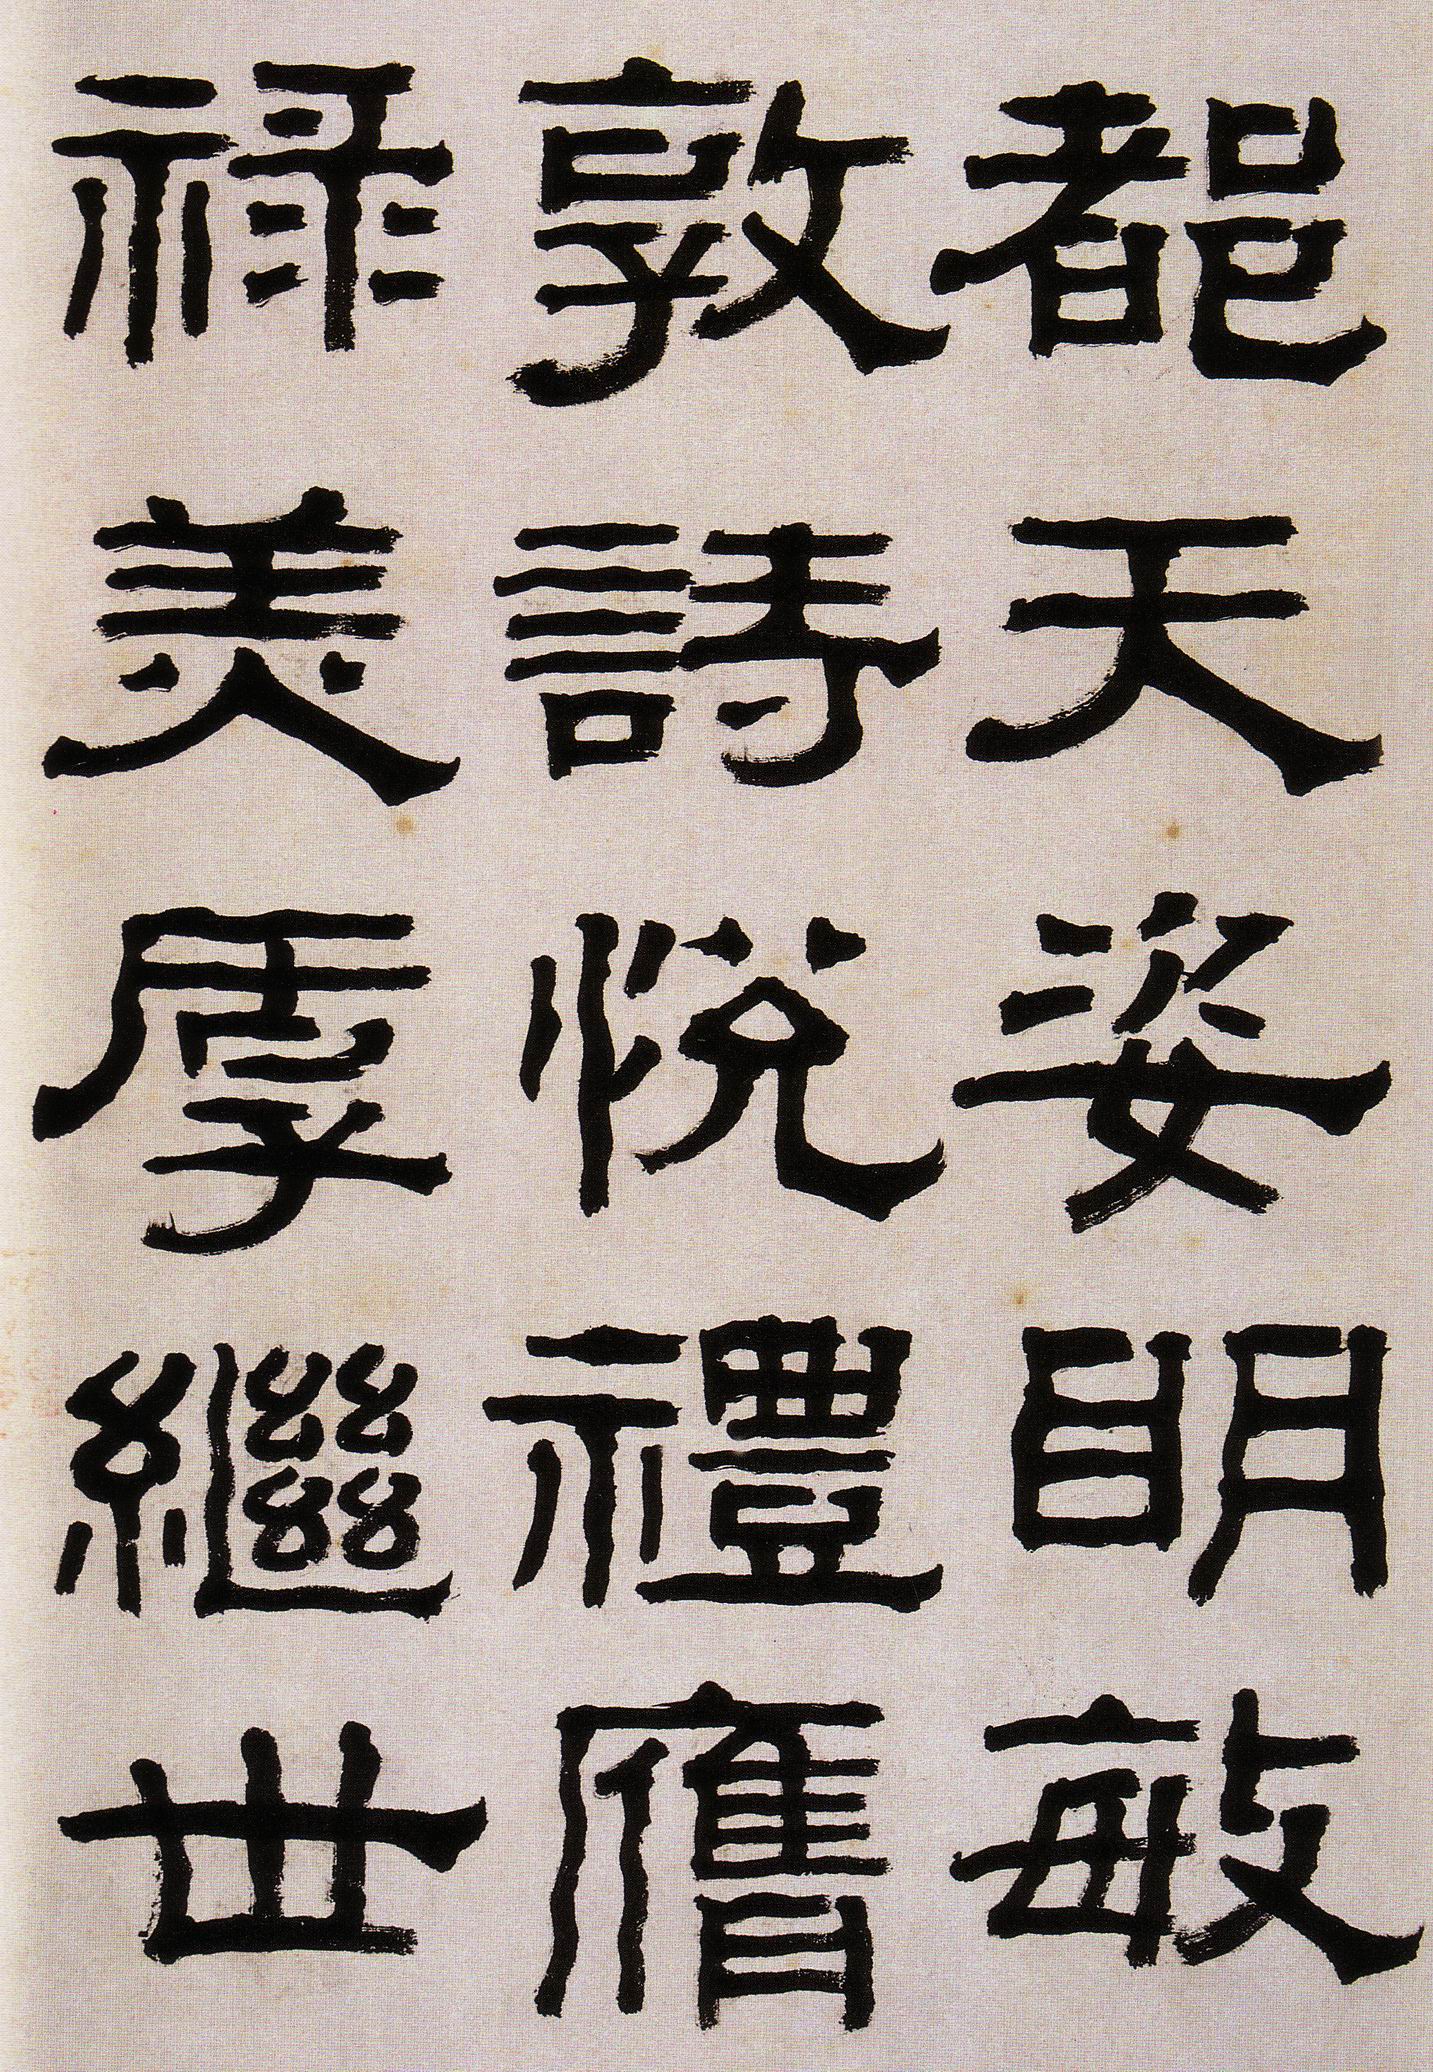 都天姿明敏
敦詩悦禮膺
祿美厚繼世